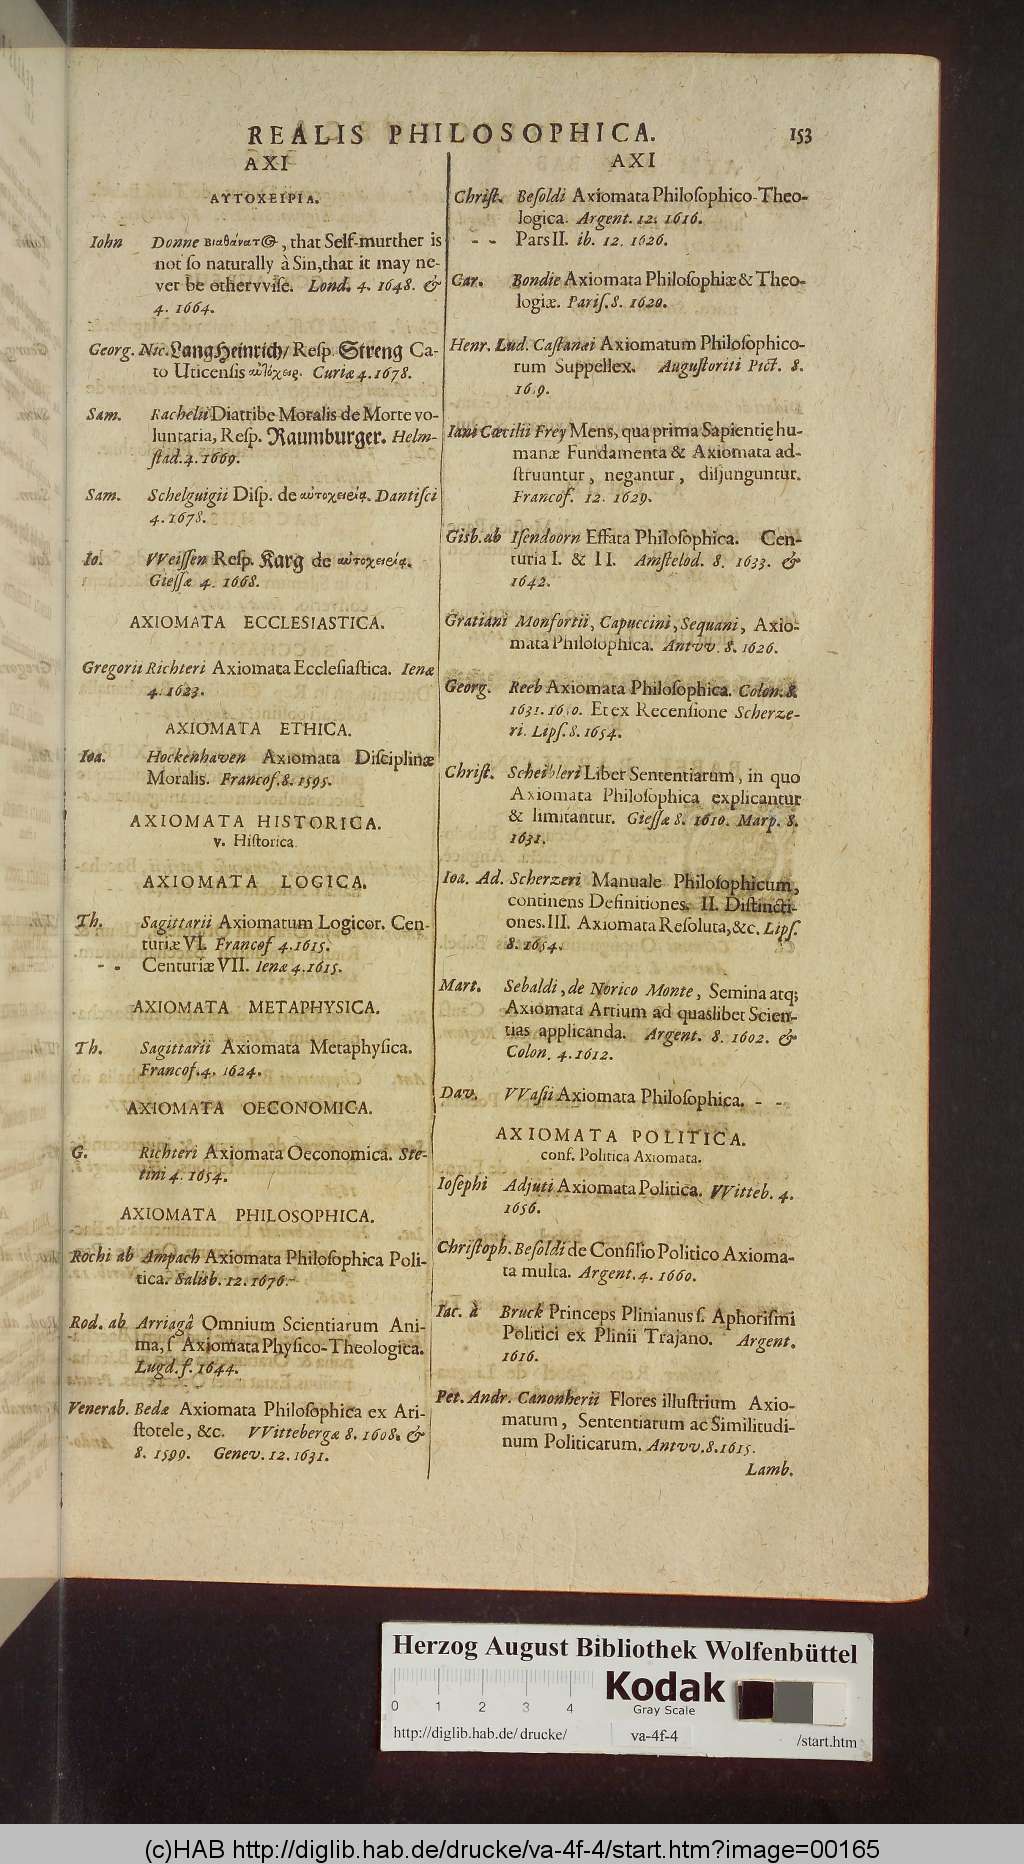 REALIS PHILOSOPHICA. 153
AXI
ΑΥΤΟΧΕΙΡΙΑ.
Iohn Donne Βιαθάνατ, that Self-murther is
not ſo naturally à Sin, that it may ne-
ver be othervviſe. Lond. 4. 1648. &
4. 1664.
Georg. Nic. LangHeinrich/ Reſp. Streng Ca-
to Uticenſis Curiæ 4. 1678.
Sam. Rachelii Diatribe Moralis de Morte vo-
luntaria, Reſp. Raumburger. Helm-
ſtad. 4. 1669.
Sam. Schelguigii Diſp. de Dantiſci
4. 1678.
Io. VVeiſſen Reſp. Karg de
Gieſſæ 4. 1668.
AXIOMATA ECCLESIASTICA.
Gregorii Richteri Axiomata Eccleſiaſtica. Ienæ
4. 1623.
AXIOMATA ETHICA.
Ioa. Hockenhaven Axiomata Diſciplinæ
Moralis. Francof. 8. 1595.
AXIOMATA HISTORICA.
v. Hiſtorica.
AXIOMATA LOGICA.
Th. Sagittarii Axiomatum Logicor. Cen-
turiæ VI. Francof 4. 1615.
- - Centuriæ VII. Ienæ 4. 1615.
AXIOMATA METAPHYSICA.
Th. Sagittarii Axiomata Metaphyſica.
Francof. 4. 1624.
AXIOMATA OECONOMICA.
G. Richteri Axiomata Oeconomica. Ste-
tini 4. 1654.
AXIOMATA PHILOSOPHICA.
Rochi ab Ampach Axiomata Philoſophica Poli-
tica. Salisb. 12. 1676.
Rod. ab Arriagâ Omnium Scientiarum Ani-
ma, ſ Axiomata Phyſico-Theologica.
Lugd. f. 1644.
Venerab. Bedæ Axiomata Philoſophica ex Ari-
ſtotele, &c. VVittebergæ 8. 1608. &
8. 1599. Genev. 12. 1631.
AXI
Chriſt. Beſoldi Axiomata Philoſophico-Theo-
logica. Argent. 12. 1616.
- - Pars II. ib. 12. 1626.
Car. Bondie Axiomata Philoſophiæ & Theo-
logiæ. Pariſ. 8. 1620.
Henr. Lud. Caſtanæi Axiomatum Philoſophico-
rum Suppellex. Auguſtoriti Pict. 8.
Iani Cæcilii Frey Mens, qua prima Sapientię hu-
manæ Fundamenta & Axiomata ad-
ſtruuntur, negantur, disjunguntur.
Francof. 12. 1629.
Gisb. ab Iſendoorn Effata Philoſophica. Cen-
turia I. & II. Amſtelod. 8. 1633. &
1642.
Gratiani Monfortii, Capuccini, Sequani, Axio-
mata Philoſophica. Antvv. 8. 1626.
Georg. Reeb Axiomata Philoſophica. Colon. 8.
1631. Et ex Recenſione Scherze-
ri. Lipſ. 8. 1654.
Chriſt. Scheibleri Liber Sententiarum, in quo
Axiomata Philoſophica explicantur
& limitantur. Gieſſæ 8. 1610. Marp. 8.
1631.
Ioa. Ad. Scherzeri Manuale Philoſophicum,
continens Definitiones. II. Diſtincti-
ones. III. Axiomata Reſoluta, &c. Lipſ.
8. 1654.
Mart. Sebaldi, de Norico Monte, Semina atq;
Axiomata Artium ad quaslibet Scien-
tias applicanda. Argent. 8. 1602. &
Colon. 4. 1612.
Dav. VVaſii Axiomata Philoſophica. - -
AXIOMATA POLITICA.
conf. Politica Axiomata.
Ioſephi Adjuti Axiomata Politica. VVitteb. 4.
1656.
Chriſtoph. Beſoldi de Conſilio Politico Axioma-
ta multa. Argent. 4. 1660.
Iac. à Bruck Princeps Plinianus ſ. Aphoriſmi
Politici ex Plinii Trajano. Argent.
1616.
Pet. Andr. Canonherii Flores illuſtrium Axio-
matum, Sententiarum ac Similitudi-
num Politicarum. Antvv. 8. 1615.
Lamb.
Herzog August Bibliothek Wolfenbüttel
0 1 2 3 4
Kodak
Gray Scale
http://diglib.hab.de/drucke/ va-4f-4 /start.htm
(c)HAB http://diglib.hab.de/drucke/va-4f-4/start.htm?image=00165